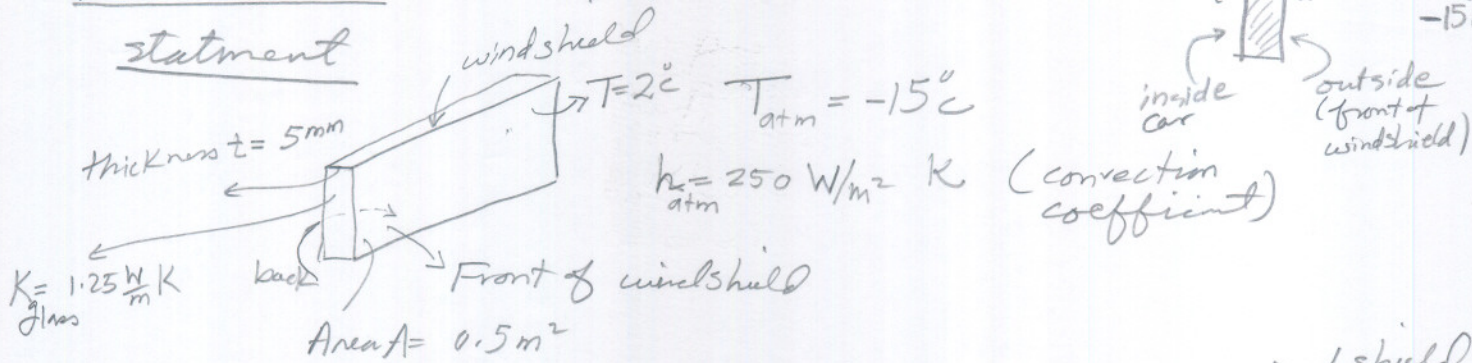 statment
windshield
T=2°C
T atm = -15°C
thickness t= 5mm
h atm = 250 W/m² K (convection coefficient)
K glass = 1.25 W/m K
back
Front of windshield
Area A= 0.5m²
-15
inside
car
outside
(front of
windshield)